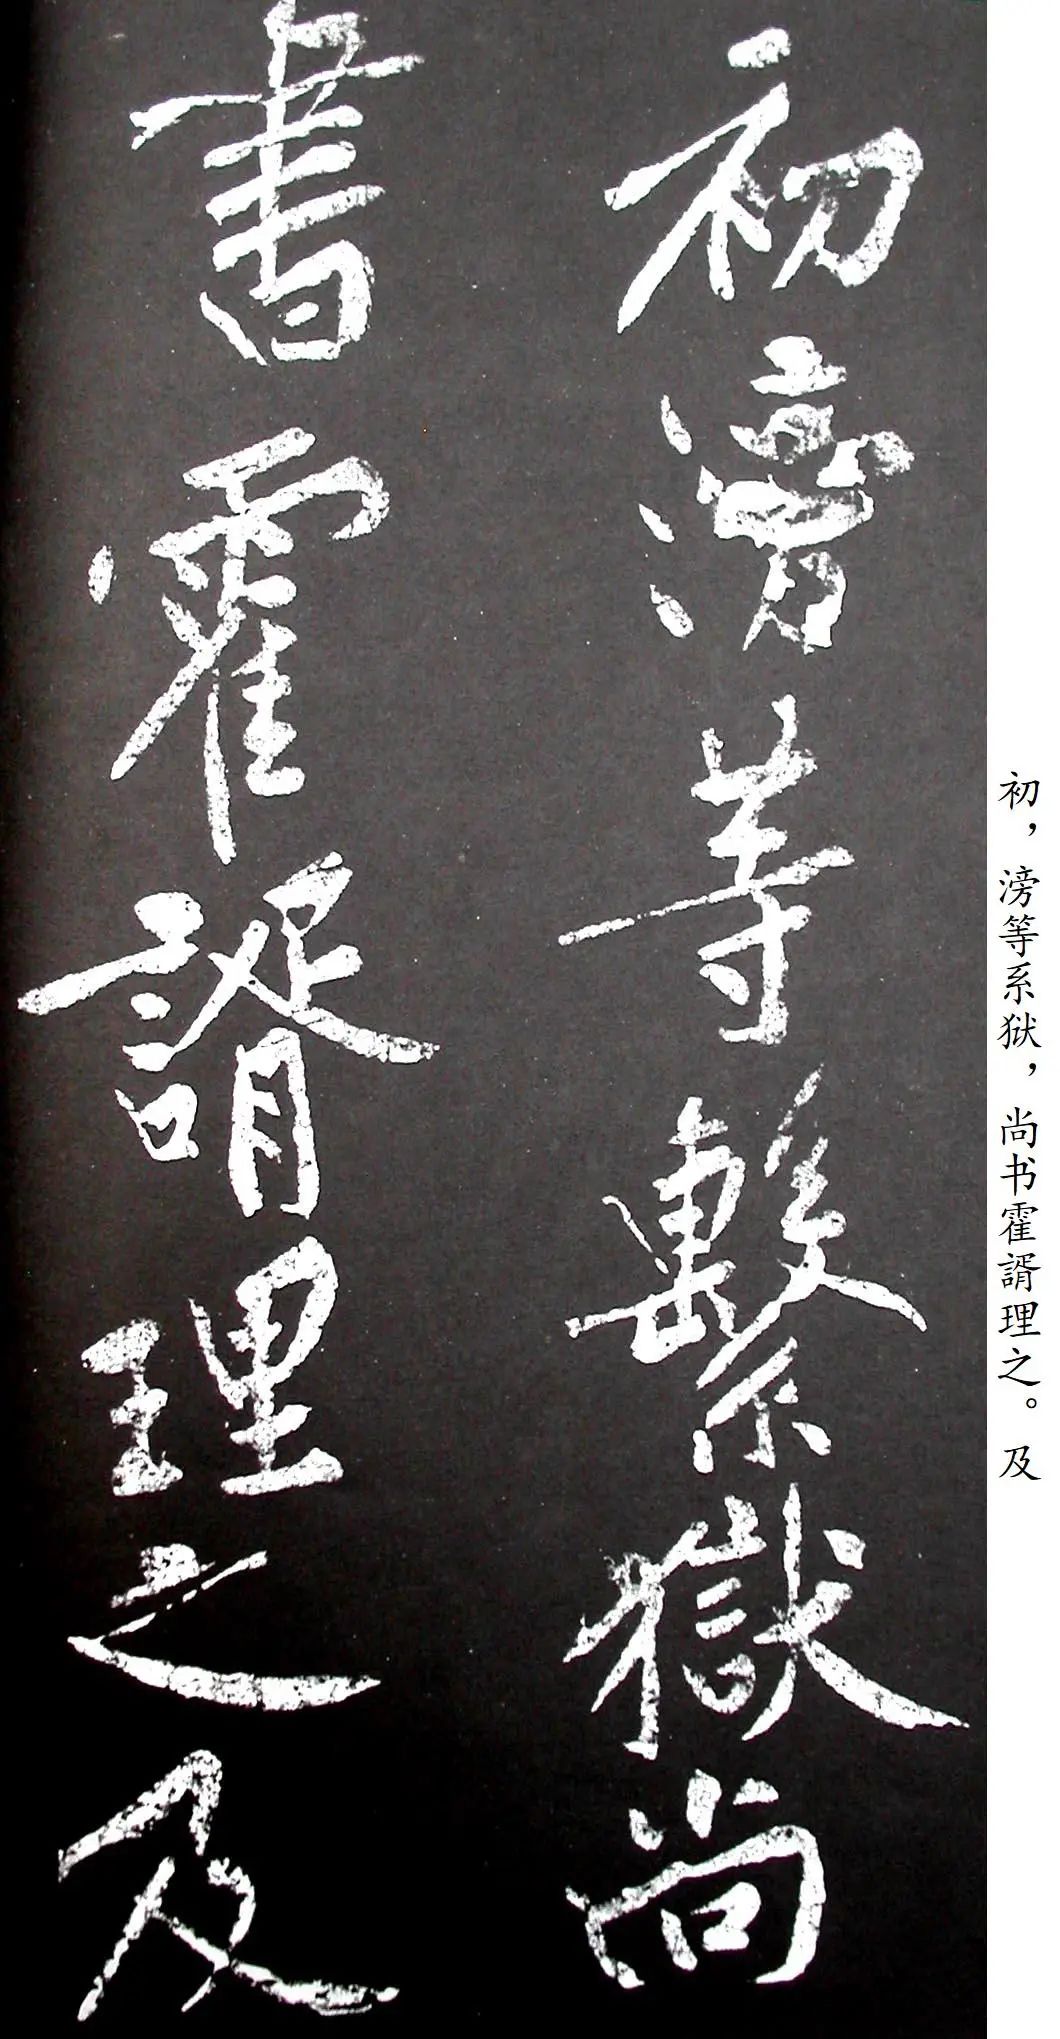 初滂等繫獄尚
書霍諝理之及
初，滂等系狱，尚书霍諝理之。及